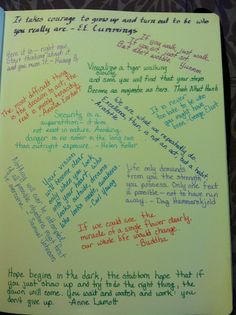 It takes courage to grow up and turn out to be who
you really are. - EE Cummings
Here it is - right now.
Start thinking about it
and you miss it. - Huang
If you walk, just walk.
If you sit, just sit
But don't wobble.
Visualize a tiger walking
slowly,
and soon you will find that your steps
Become as majestic as hers. Thich Nhat Hanh
The most difficult thing
is the decision to act, the
rest is merely tenacity.
- Amelia Earhart
We are what
we repeatedly do.
Excellence, then, is not an act but a habit.
- Aristotle
Security is a
superstition - it does
not exist in nature. Avoiding
danger is no safer in the long run
than outright exposure. - Helen Keller
It is never
too late to be who
you might have
been. George Eliot
Your vision
will become clear
only when you
look into your heart.
Who looks outside, dreams
Who looks inside, awakens.
Carl Jung
Life only demands
from you the strength
you possess. Only one feat
is possible - not to have
run away. - Dag Hammarskjold
If we could see the
miracle of a single flower clearly,
our whole life would change.
- Buddha
Hope begins in the dark, the stubborn hope that if
you just show up and try to do the right thing, the
dawn will come. You wait and watch and work: you
don't give up. - Anne Lamott